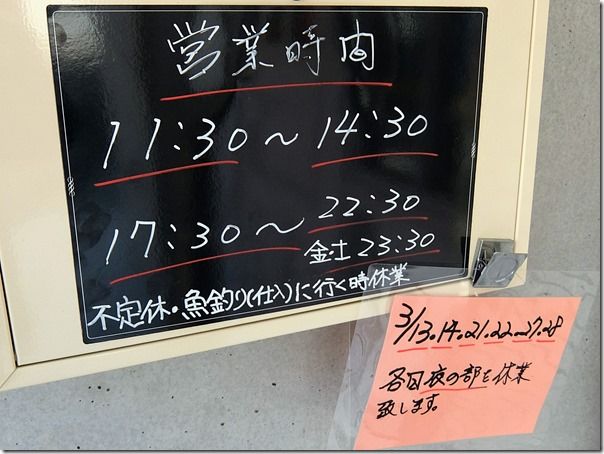 営業時間
11:30～14:30
17:30～22:30
金・土 23:30
不定休・魚釣り(仕入)に行く時休業
3/13.14.21.22～27.28
各日夜の部を休業
致します。